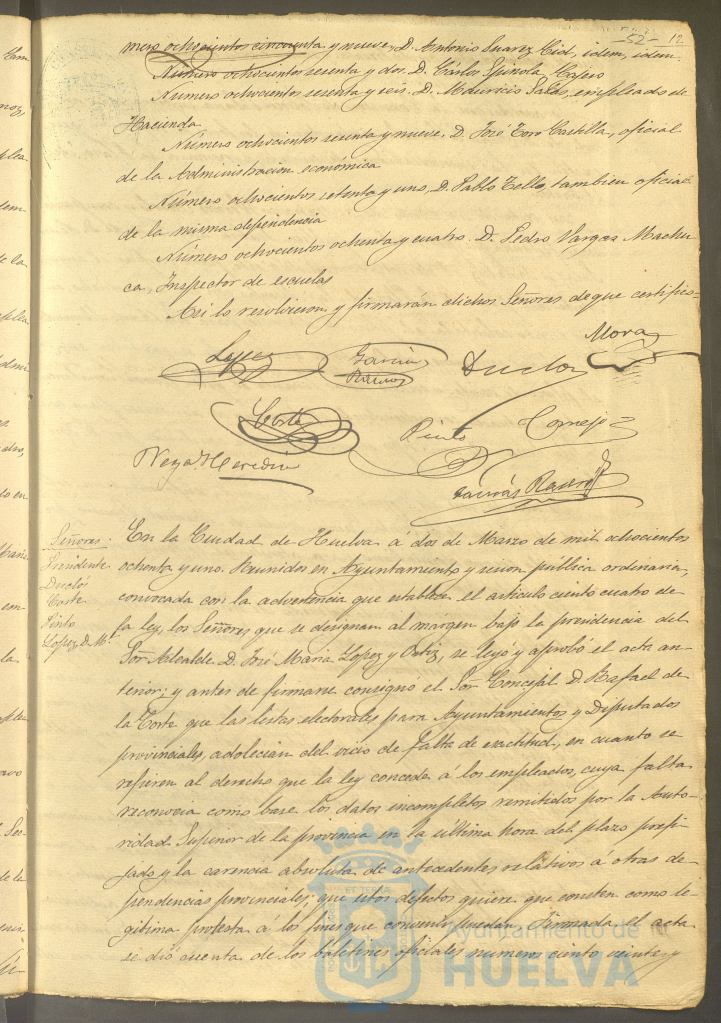 52- 12
mero ochocientos cincuenta y nueve, D. Antonio Suarez Cid, idem, idem.
Número ochocientos sesenta y dos. D. Cárlos Spinola
Número ochocientos sesenta y seis. D. Mauricio Salas, empleado de
Hacienda
Número ochocientos sesenta y nueve. D. José Toro Castilla, oficial
de la Administracion económica
Número ochocientos setenta y uno, D. Pablo Tello, tambien oficial
de la misma dependencia
Número ochocientos ochenta y cuatro. D. Pedro Vargas Machu
ca, Inspector de escuelas
Asi lo resolvieron y firmarán dichos Señores de que certifico-
Mora
Lopez
Garcia
Ramos
Duclos
Corte
Pinto
Cornejo
Señores.
Presidente
Ducló
Corte
Pinto
Lopez, D. Ml.
En la Ciudad de Huelva á dos de Marzo de mil ochocientos
ochenta y uno. Reunidos en Ayuntamiento y sesion pública ordinaria,
convocada con la advertencia que establece el artículo ciento cuatro de
la ley, los Señores que se designan al margen bajo la presidencia del
Sor. Alcalde D. José Maria Lopez y Ortiz, se leyó y aprobó el acta an-
terior; y antes de firmarse consignó el Sor. Concejal D. Rafael de
la Corte que las listas electorales para Ayuntamientos y Diputados
provinciales, adolecian del vicio de falta de exactitud, en cuanto se
refieren al derecho que la ley concede á los empleados, cuya falta
reconocia como base los datos incompletos remitidos por la Auto-
ridad Superior de la provincia en la última hora del plazo prefi-
jado y la carencia absoluta de antecedentes relativos á otras de-
pendencias provinciales; que estos defectos quiere que consten como le-
gitima protesta á los fines que convenir puedan. Firmada el acta
se dió cuenta de los boletines oficiales números ciento veinte y
Ayuntamiento de
HUELVA